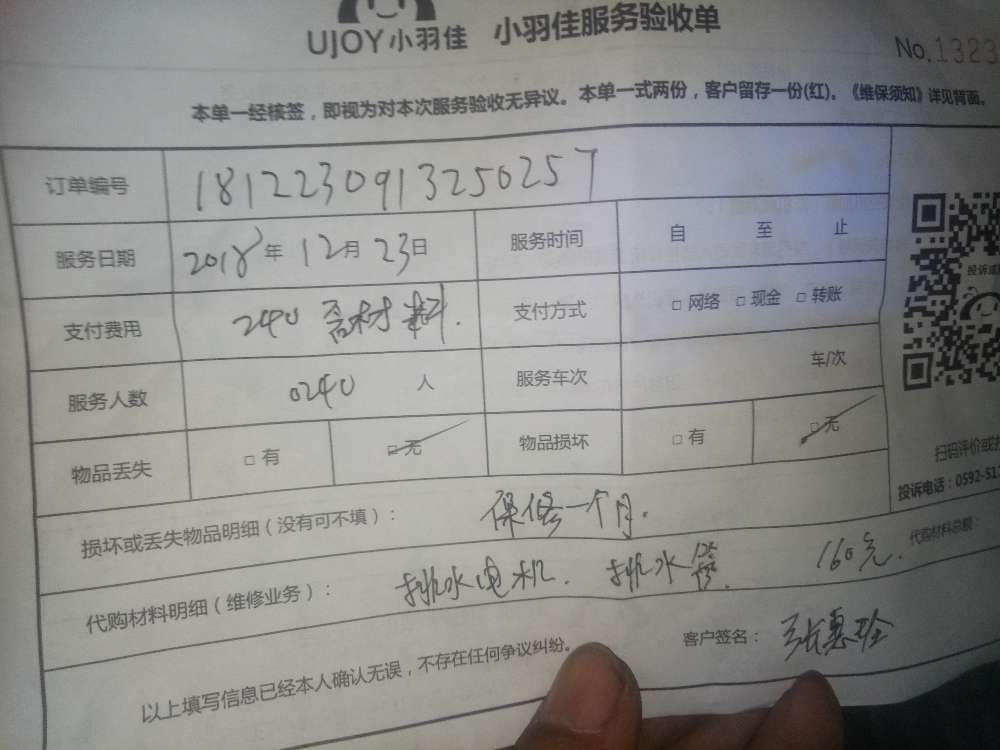 UJOY小羽佳 小羽佳服务验收单
No.1323
本单一经核签，即视为对本次服务验收无异议。本单一式两份，客户留存一份(红)。《维保须知》详见背面。
订单编号 1812230913250257
服务日期 2018年12月23日 服务时间 自 至 止
支付费用 240含材料. 支付方式 □ 网络 □ 现金 □ 转账
服务人数 0240 人 服务车次 车/次
物品丢失 □ 有 □ 无 物品损坏 □ 有 □ 无
投诉
扫码评价或
投诉电话：0592-51
损坏或丢失物品明细（没有可不填）： 保修一个月.
代购材料明细（维修业务）： 排水电机. 排水 160元. 代购材料总额：
以上填写信息已经本人确认无误，不存在任何争议纠纷。 客户签名： 张惠